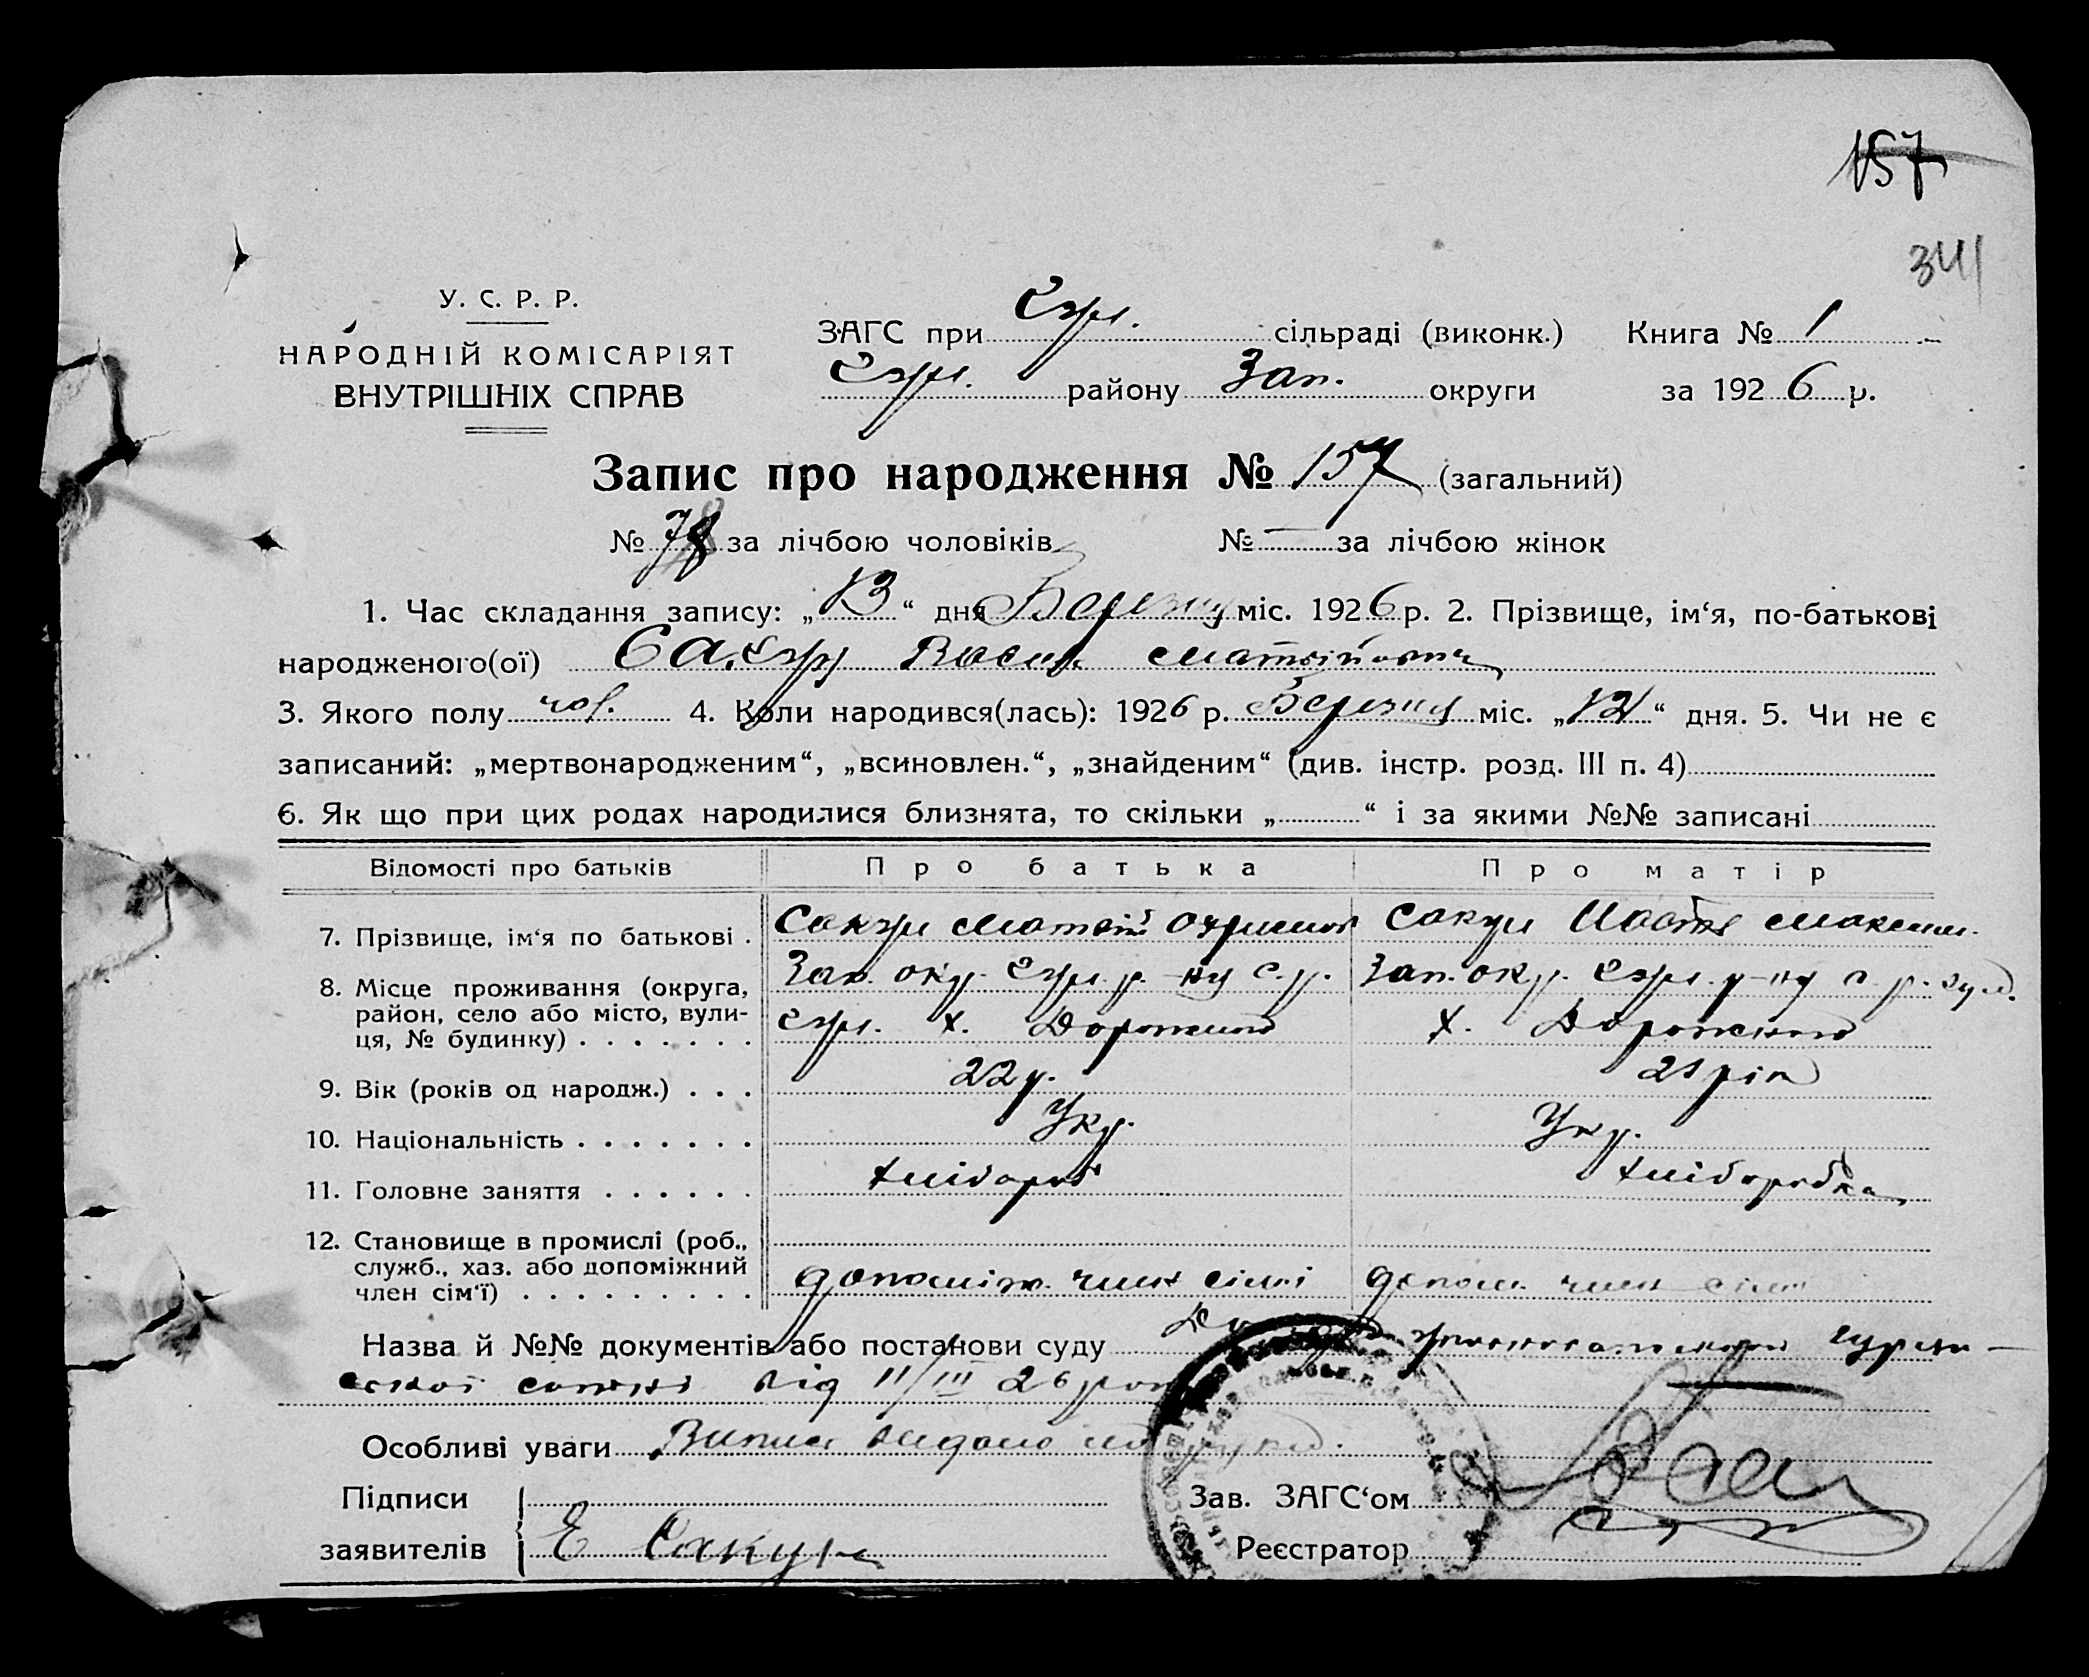 157
341
У. С. Р. Р.
НАРОДНІЙ КОМІСАРІЯТ
ВНУТРІШНІХ СПРАВ
ЗАГС при сільраді (виконк.) Книга № 1
району Зап. округи за 1926 р.
Запис про народження № 157 (загальний)
№ 78 за лічбою чоловіків № — за лічбою жінок
1. Час складання запису: „13“ дня Березня міс. 1926 р. 2. Прізвище, ім‘я, по-батькові
народженого(ої) Василь Матвійович
3. Якого полу чол. 4. Коли народився(лась): 1926 р. Березня міс. „12“ дня. 5. Чи не є
записаний: „мертвонародженим“, „всиновлен.“, „знайденим“ (див. інстр. розд. III п. 4)
6. Як що при цих родах народилися близнята, то скільки „ “ і за якими №№ записані
Відомості про батьків Про батька Про матір
7. Прізвище, ім‘я по батькові . Сакун Матвій Сакун Настя Максим.
8. Місце проживання (округа, Зап. окр. р-ну с.р. Зап. окр. р-ну с. р.
район, село або місто, вули- х. х.
ця, № будинку) . . . . . . .
9. Вік (років од народж.) . . . 22 р. 21 рік
10. Національність . . . . . . . Укр. Укр.
11. Головне заняття . . . . . . хлібороб хліборобка
12. Становище в промислі (роб.,
служб., хаз. або допоміжний
член сім‘ї) . . . . . . . . . допоміж. член сімї допом. член сімї
Назва й №№ документів або постанови суду
від 11/III 26 рок
Особливі уваги Випис видано
Підписи Зав. ЗАГС‘ом
заявителів Е Сакун Реєстратор